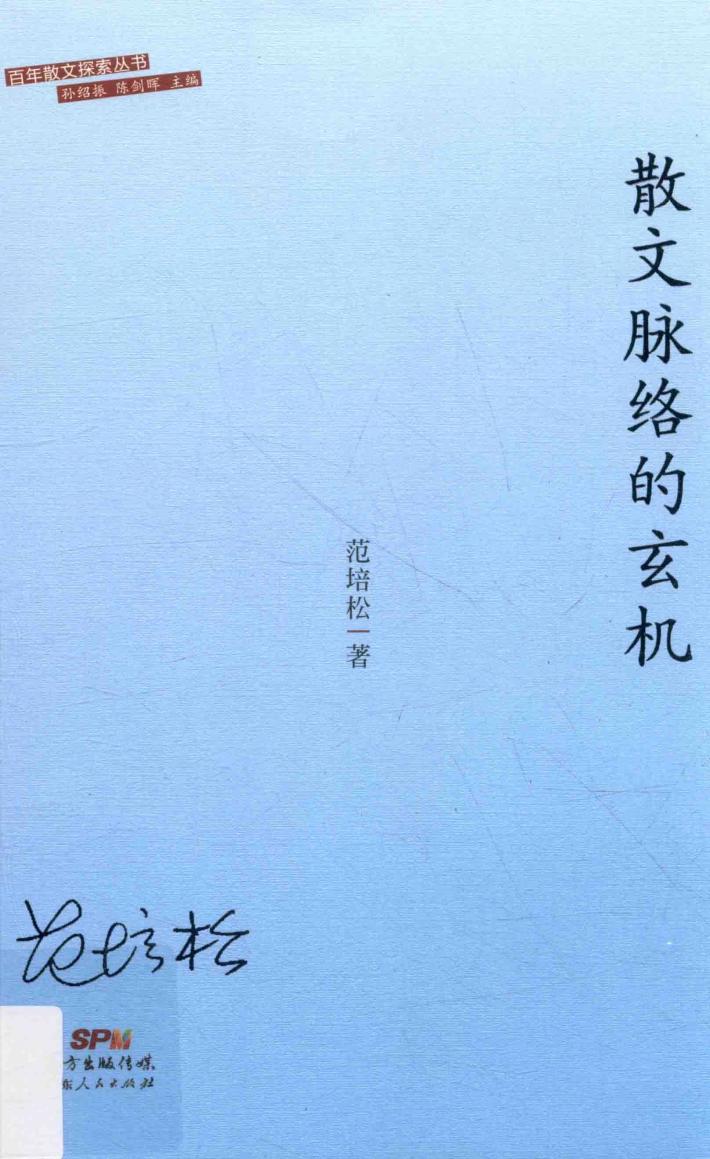 百年散文探索丛书
孙绍振 陈剑晖 主编
散文脉络的玄机
范培松 著
范培松
SPM
方出版传媒
东人民出版社